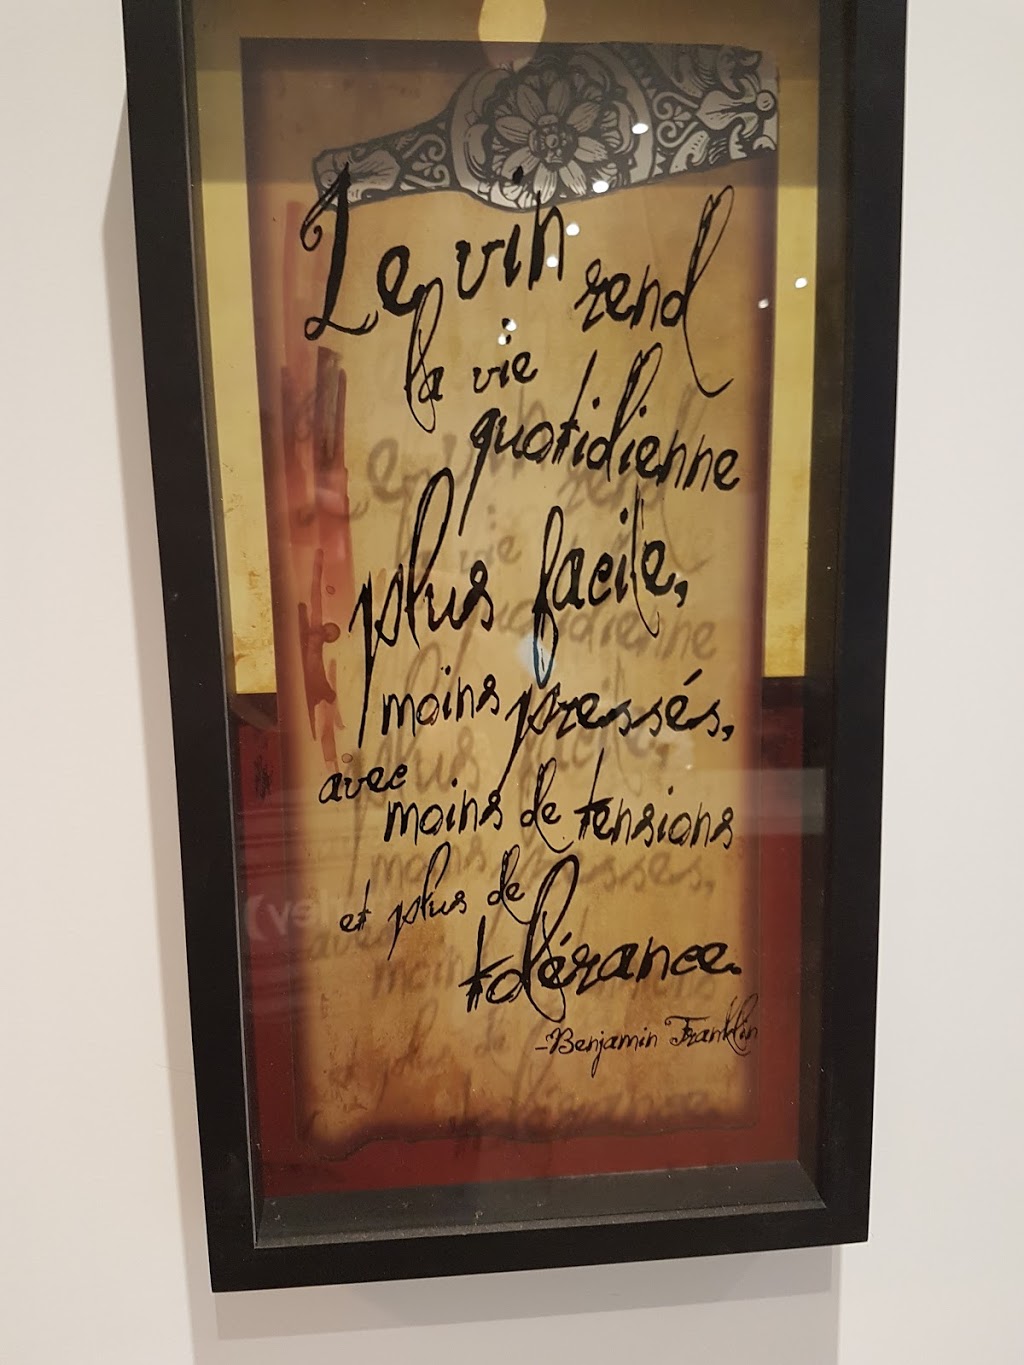 Le vin rend
la vie
quotidienne
plus facile,
moins pressés,
avec
moins de tensions
et plus de
tolérance.
-Benjamin Franklin